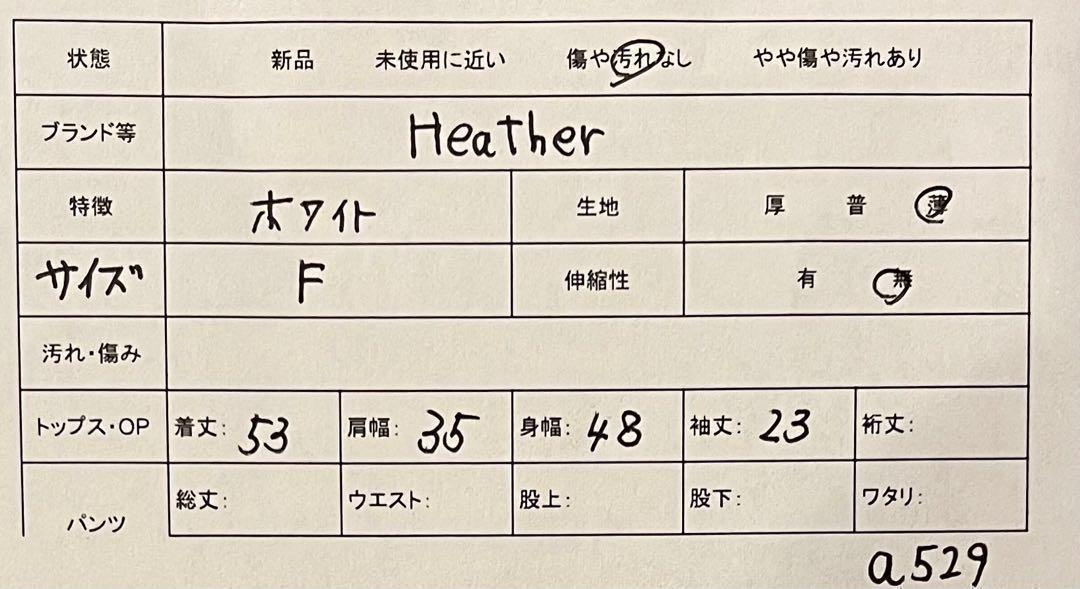 状態 新品 未使用に近い 傷や汚れなし やや傷や汚れあり
ブランド等 Heather
特徴 ホワイト 生地 厚 普 薄
サイズ F 伸縮性 有 無
汚れ・傷み
トップス・OP 着丈: 53 肩幅: 35 身幅: 48 袖丈: 23 裄丈:
パンツ 総丈: ウエスト: 股上: 股下: ワタリ:
a529